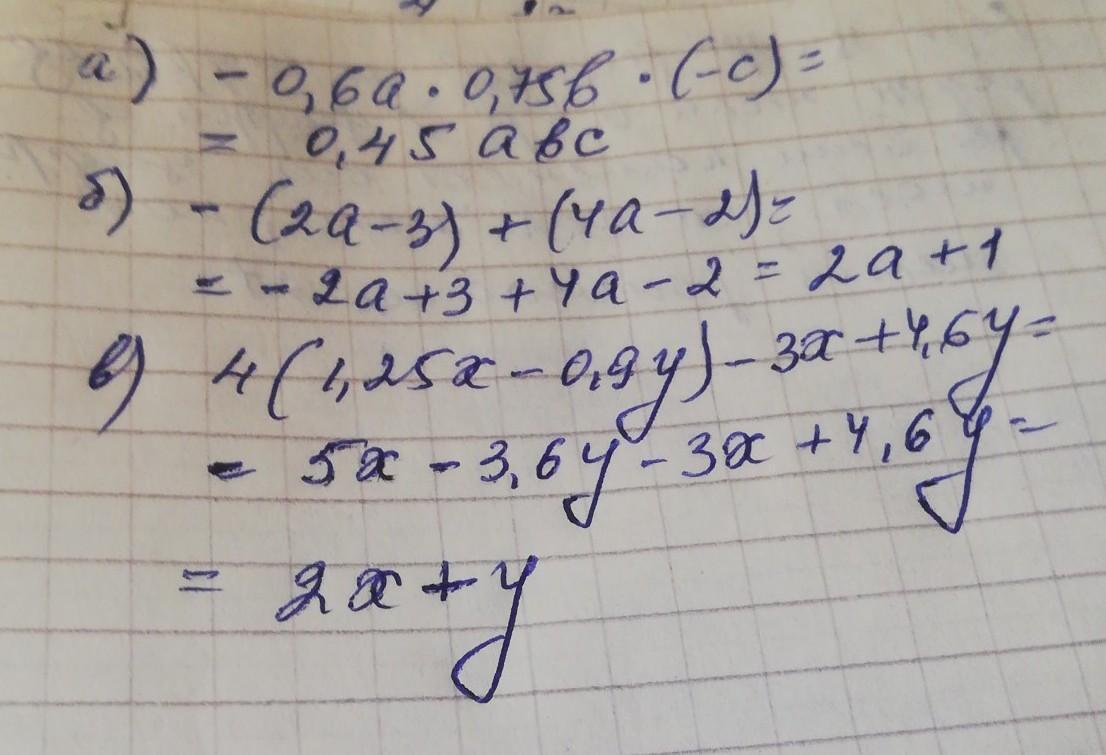 а) - 0,6a · 0,75b · (-c) =
= 0,45 abc
б) - (2a - 3) + (4a - 2) =
= - 2a + 3 + 4a - 2 = 2a + 1
в) 4 (1,25x - 0,9y) - 3x + 4,6y =
= 5x - 3,6y - 3x + 4,6y =
= 2x + y